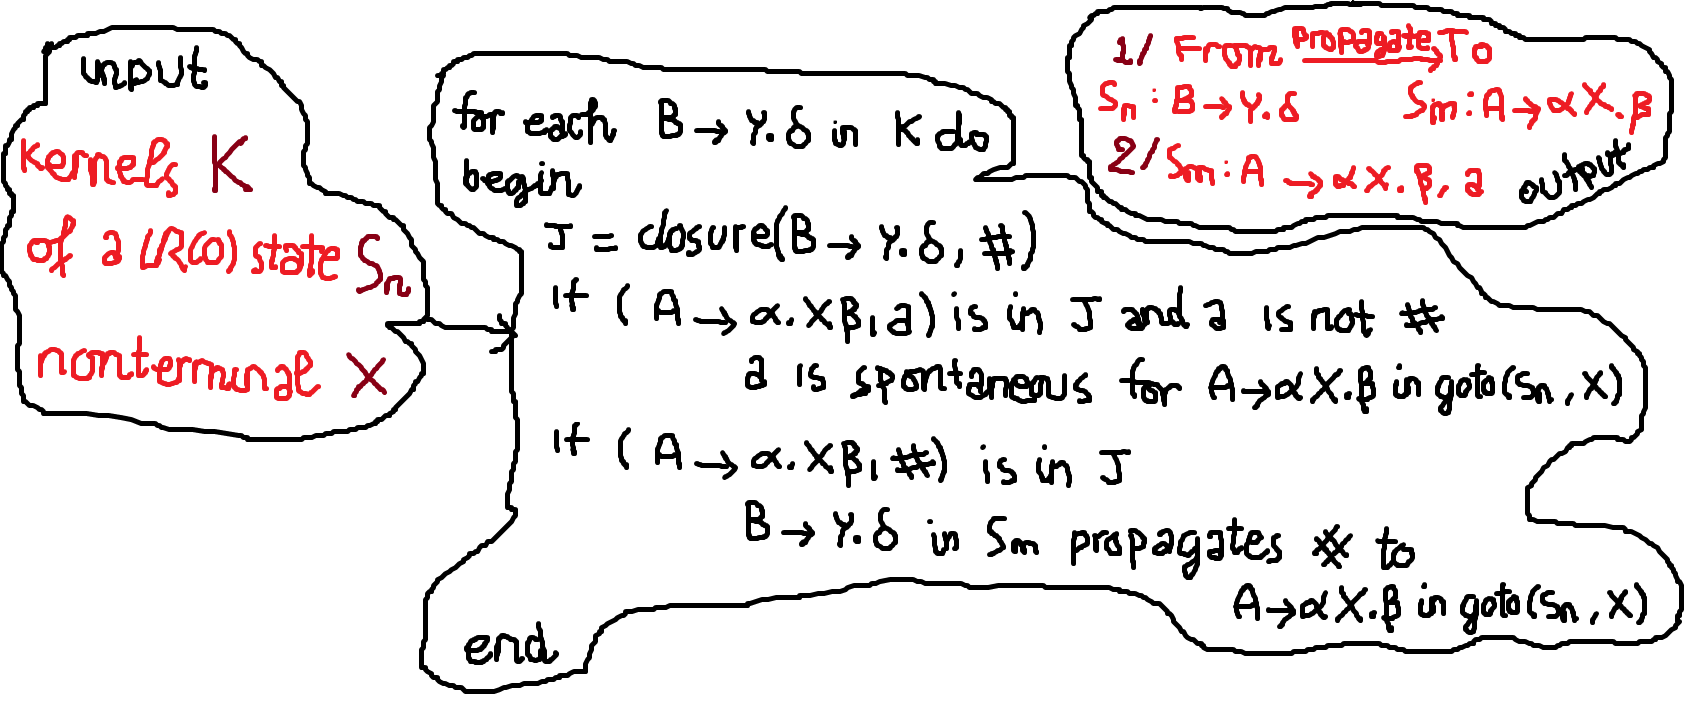 input
kernels K
of a LR(0) state Sn
nonterminal X
for each B → γ.δ in K do
begin
J = closure(B → γ.δ, #)
if (A → α.Xβ, a) is in J and a is not #
a is spontaneous for A → αX.β in goto(Sn, X)
if (A → α.Xβ, #) is in J
B → γ.δ in Sm propagates # to
A → αX.β in goto(Sn, X)
end
1/ From propagate → To
Sn : B → γ.δ Sm : A → αX.β
2/ Sm : A → αX.β, a
output